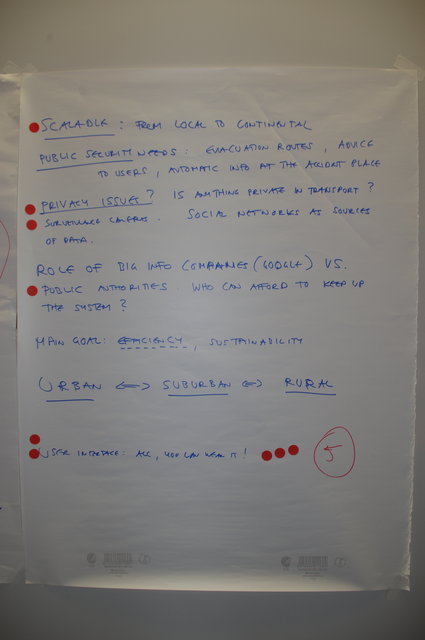 SCALABLE : FROM LOCAL TO CONTINENTAL
PUBLIC SECURITY NEEDS : EVACUATION ROUTES , ADVICE
TO USERS , AUTOMATIC INFO AT THE ACCIDENT PLACE
PRIVACY ISSUES ? IS ANYTHING PRIVATE IN TRANSPORT ?
SURVEILLANCE CAMERAS . SOCIAL NETWORKS AS SOURCES
OF DATA .
ROLE OF BIG INFO COMPANIES (GOOGLE) VS.
PUBLIC AUTHORITIES . WHO CAN AFFORD TO KEEP UP
THE SYSTEM ?
MAIN GOAL : EFFICIENCY , SUSTAINABILITY
URBAN <=> SUBURBAN <=> RURAL
USER INTERFACE : ALL , YOU CAN WEAR IT !
5